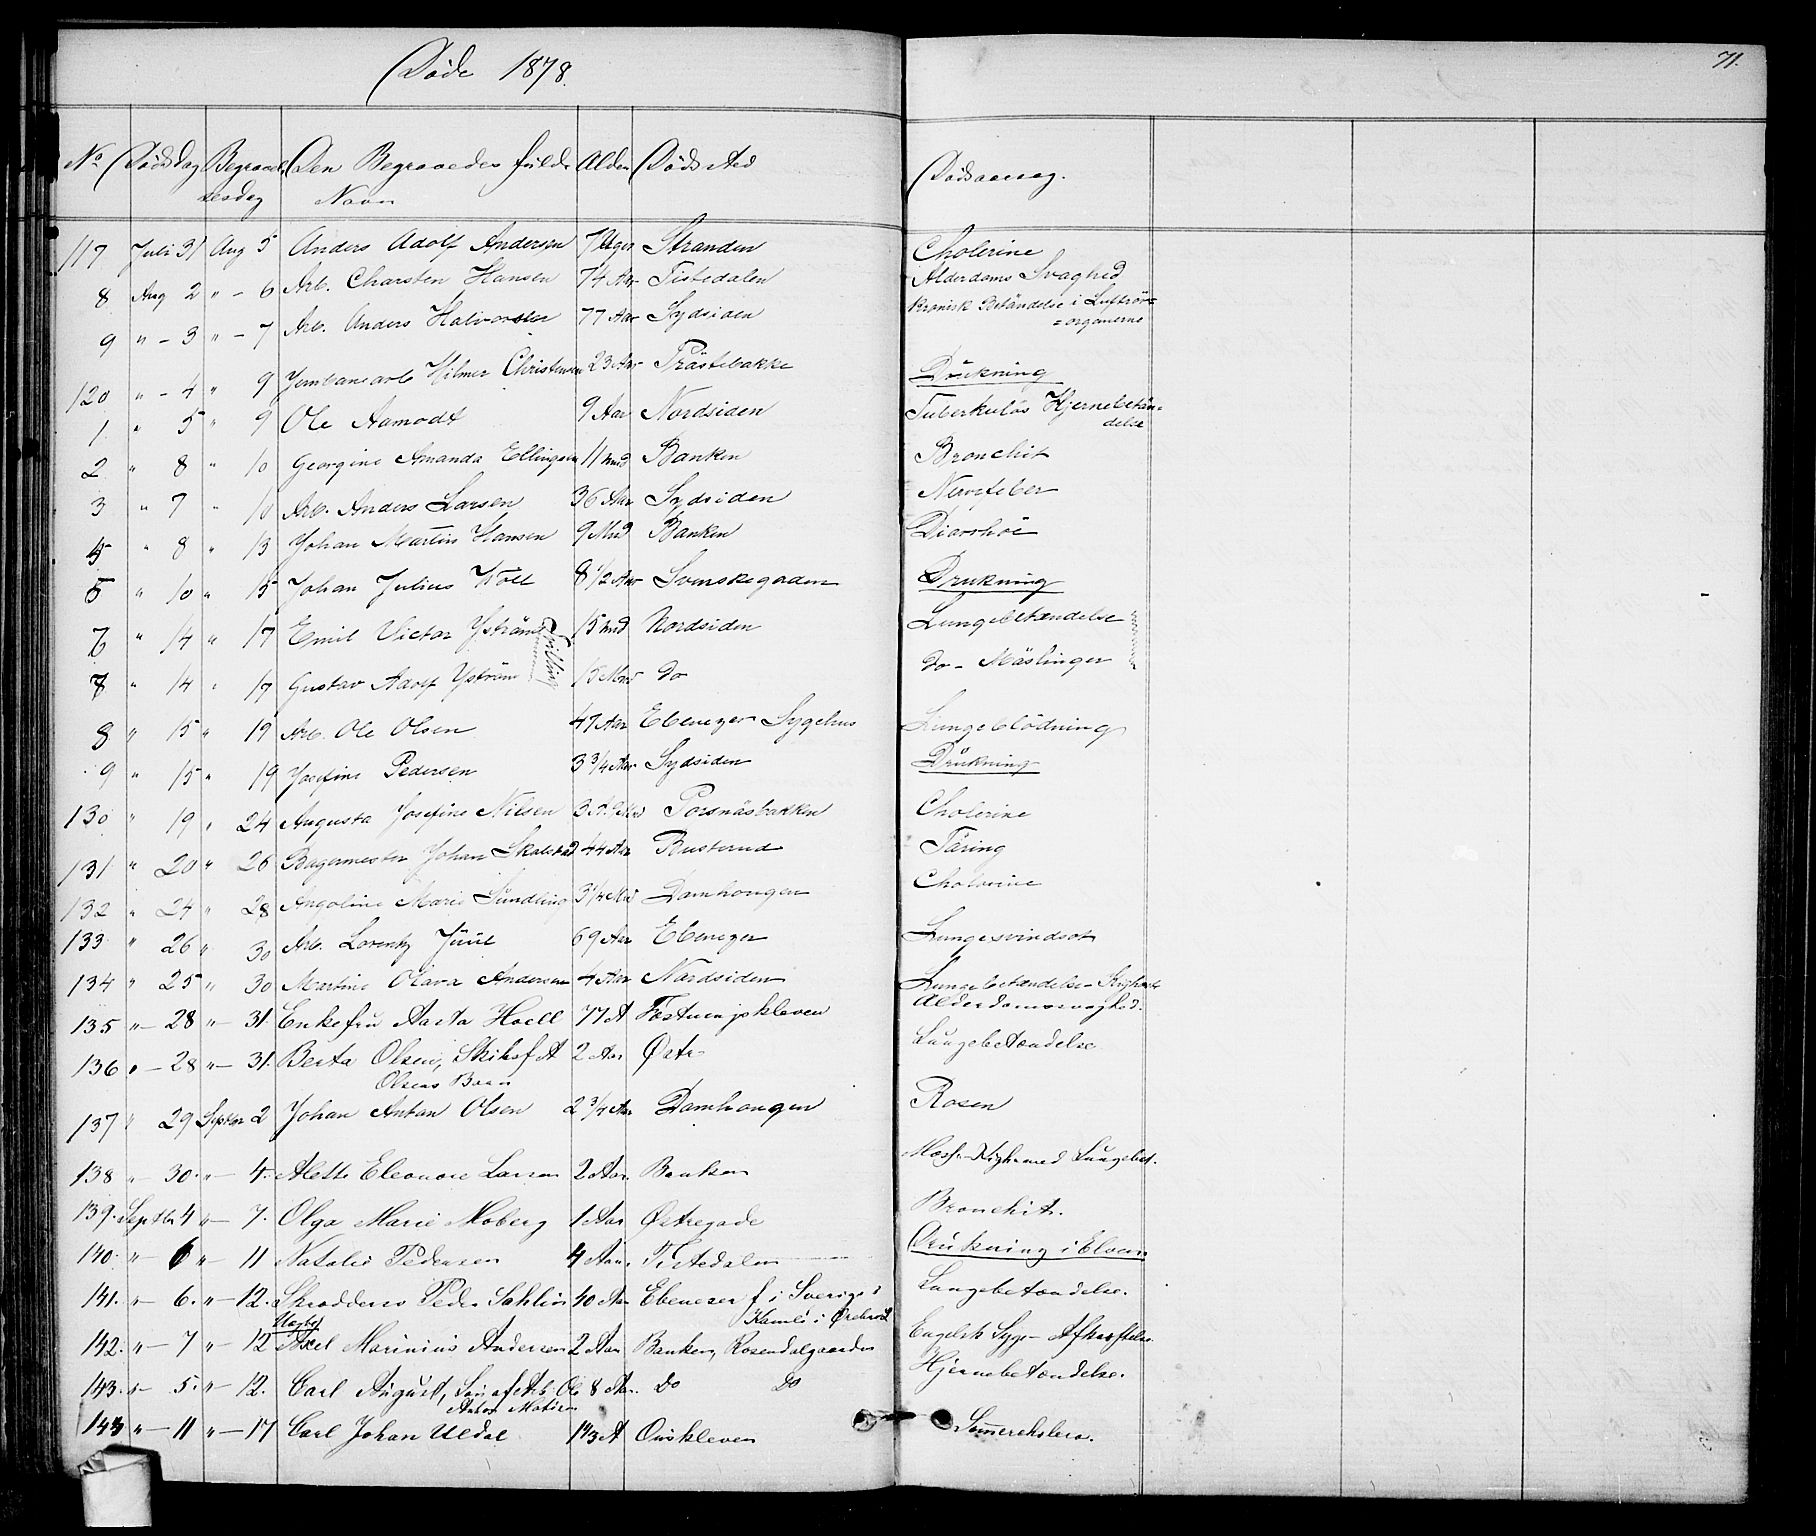 Døde 1878.
71.
No Dødsdag Begravel Den Begravedes fulde Alder Dødssted Dødsaarsag.
sesdag Navn
117 Juli 31 Aug 5 Anders Adolf Andersen 7 Uger Stranden Cholerine
8 Aug 2 " - 6 Arb. Charsten Hansen 74 Aar Tistedalen Alderdoms Svaghed
9 " - 3 " - 7 Arb. Anders Halvorsen 77 Aar Sydsiden Kronisk Betändelse i Luftrör=
=organerne
120 " - 4 " 9 Jernbanearb Hilmer Christensen 23 Aar Prästebakke Drukning
1 " 5 " 9 Ole Aamodt 9 Aar Nordsiden Tuberkulös Hjernebetän=
delse
2 " 8 " 10 Georgine Amanda Ellingsen 11 Mnd Banken Bronchit
3 " 7 " 10 Arb. Anders Larsen 36 Aar Sydsiden Nervefeber
4 " 8 " 13 Johan Martin Hansen 9 Mnd Banken Diarrhöe
5 " 10 " 15 Johan Julius Woll 8 1/2 Aar Svenskegaden Drukning
6 " 14 " 17 Emil Victor Yström 15 Mnd Nordsiden Lungebetændelse
Tvilling
7 " 14 " 17 Gustav Adolf Yström 15 Mnd do do - Mäslinger
8 " 15 " 19 Arb. Ole Olsen 47 Aar Ebenezer Sygehus Lungeblödning
9 " 15 " 19 Josefine Pedersen 3 3/4 Aar Sydsiden Drukning
130 " 19 " 24 Augusta Josefine Nilsen 3 A. 9 Md Porsnäsbakken Cholerine
131 " 20 " 26 Bagermester Johan Skolstad 44 Aar Busterud Täring
132 " 24 " 28 Angoline Marie Sundling 3 1/4 Md Damhougen Cholerine
133 " 26 " 30 Arb. Lorentz Juul 69 Aar Ebenezer Lungesvindsot
134 " 25 " 30 Martine Olava Andersen 4 Aar Nordsiden Lungebetændelse - Kighoste
135 " - 28 " - 31. Enkefru Aasta Hoell 77 A Fæstningskleven Alderdomssvaghed.
136 " - 28 " - 31. Berta Olsen, Skibsf A 2 Aar Østre Lungebetændelse
Olsens Barn
137 " 29 Septbr 2 Johan Anton Olsen 2 3/4 Aar Damhougen Rosen
138 " 30. " - 4. Alette Eleonore Larsen 2 Aar Banken Lungebet.
139. Septbr 4 " - 7. Olga Marie Moberg 1 Aar Østregade Bronchit.
140. " - 6 " - 11 Natalie Pedersen 4 Aar. Tistedalen Drukning i Elven
141. " - 6. " - 12. Skrædder Peder Sahlin 40 Aar Ebenezer f i Sverige Lungebetændelse.
i Ørebro
142. " - 7 " - 12 Axel Marinius Andersen 2 Aar Banken, Rosendalgaarden Engelsk Syge - Afkræftelse
143. " - 5. " - 12. Carl August, Søn af Arb. Ole 8 Aar. Do Do Hjernebetændelse.
Anton
144 " - 11 " - 17 Carl Johan Uldal 1 1/3 A Ouskleven